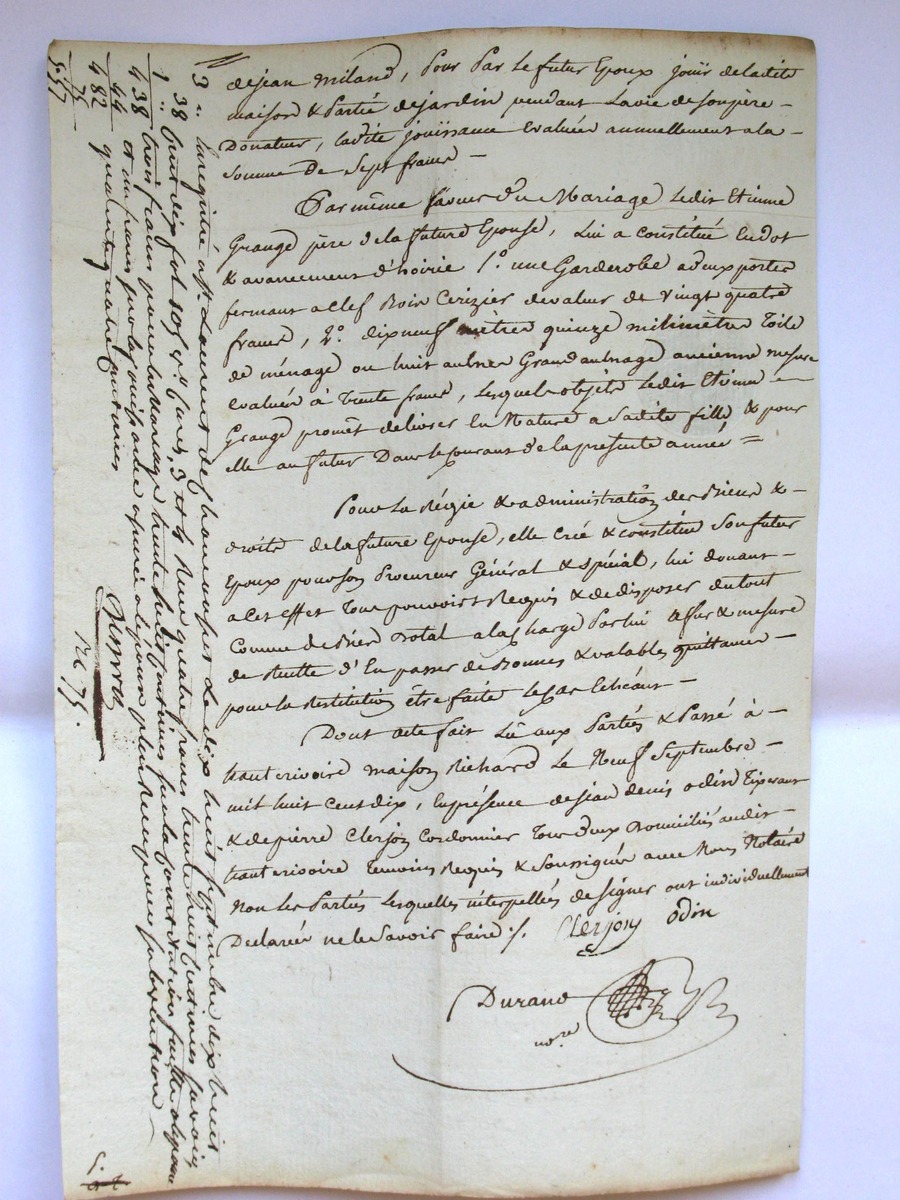 de jean miland, pour par le futur Epoux jouir de ladite
maison & partie de jardin pendant la vie de son père
Donateur, ladite jouissance evaluée annuellement a la
somme de sept francs
Par même faveur du Mariage ledit Etienne
Grange père de la future Epouse, lui a constitué en dot
& avancement d'hoirie 1.º une Garderobe a deux portes
fermant a clef Bois Cerizier de valeur de vingt quatre
francs, 2.º dix neuf mètres quinze milimètres Toile
de ménage ou huit aulnes Grand aulnage ancienne mesure
evaluée à trente francs, lesquels objets ledit Etienne
Grange promet délivrer En Nature a sadite fille & pour
elle au futur Dans le courant de la présente année =
Pour la Régie & administration des Biens &
droits de la future Epouse, elle créé & constitue son futur
Epoux pour son Procureur Général & spécial, lui donant
a cet effet Tous pouvoirs Requis & de disposer du tout
Comme de Bien Dotal a la charge par lui a fur & mesure
de Recette d'En passer de Bonnes & valables quittances
pour la Restitution être faite le cas Echéant
Dont acte fait Lu aux Parties & Passé à
hauterivoire maison Richard le Neuf Septembre
mil huit cent dix, En présence de jean denis odin Tixerant
& de pierre Clerjon Cordonnier Tous deux Domiciliés audit
hauterivoire Temoins Requis & Soussignés avec Nous Notaire
Non les Parties lesquelles interpellées de signer ont individuellement
Declarées ne le savoir faire ./. Clerjon odin
Durand
no.re
3 " Enregistré à St. Laurent de chamousset le dix huit septembre dix huit
38 cent dix fol 105 r.º cases 3 et 4 Reçu quatre francs trente huit centimes savoir
1 " trois francs pour le mariage trente huit centimes sur la
4 38 et un franc pour la jouissance
44 quarante quatre centimes
4 82
75
5.57
Re 75.